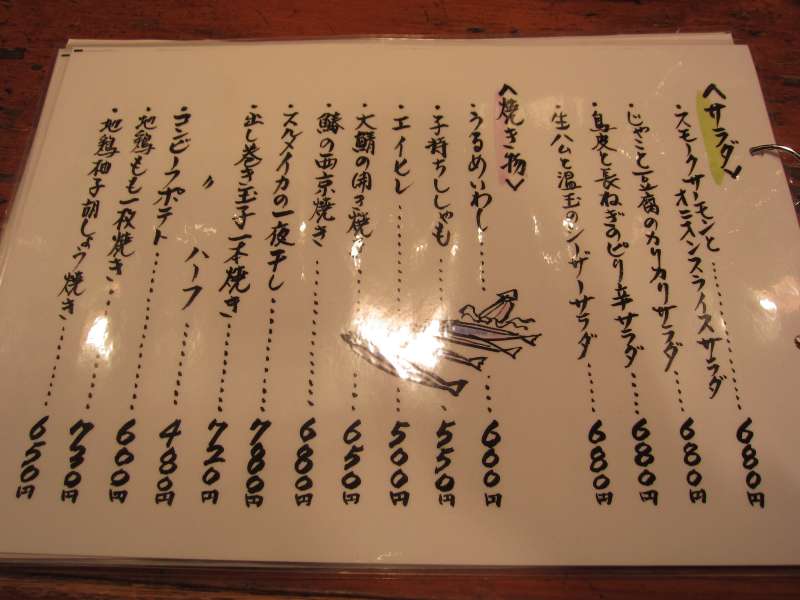 <サラダ>
・スモークサーモンと
オニオンスライスサラダ……680円
・じゃこと豆腐のカリカリサラダ……680円
・鳥皮と長ねぎのピリ辛サラダ……680円
・生ハムと温玉のシーザーサラダ……680円
<焼き物>
・うるめいわし……600円
・子持ちししゃも……550円
・エイヒレ……500円
・大鯖の開き焼き……650円
・鰆の西京焼き……680円
・スルメイカの一夜干し……780円
・出し巻き玉子一本焼き……720円
〃 ハーフ……480円
・コンビーフポテト……600円
・地鶏もも一枚焼き……730円
・地鶏柚子胡しょう焼き……650円